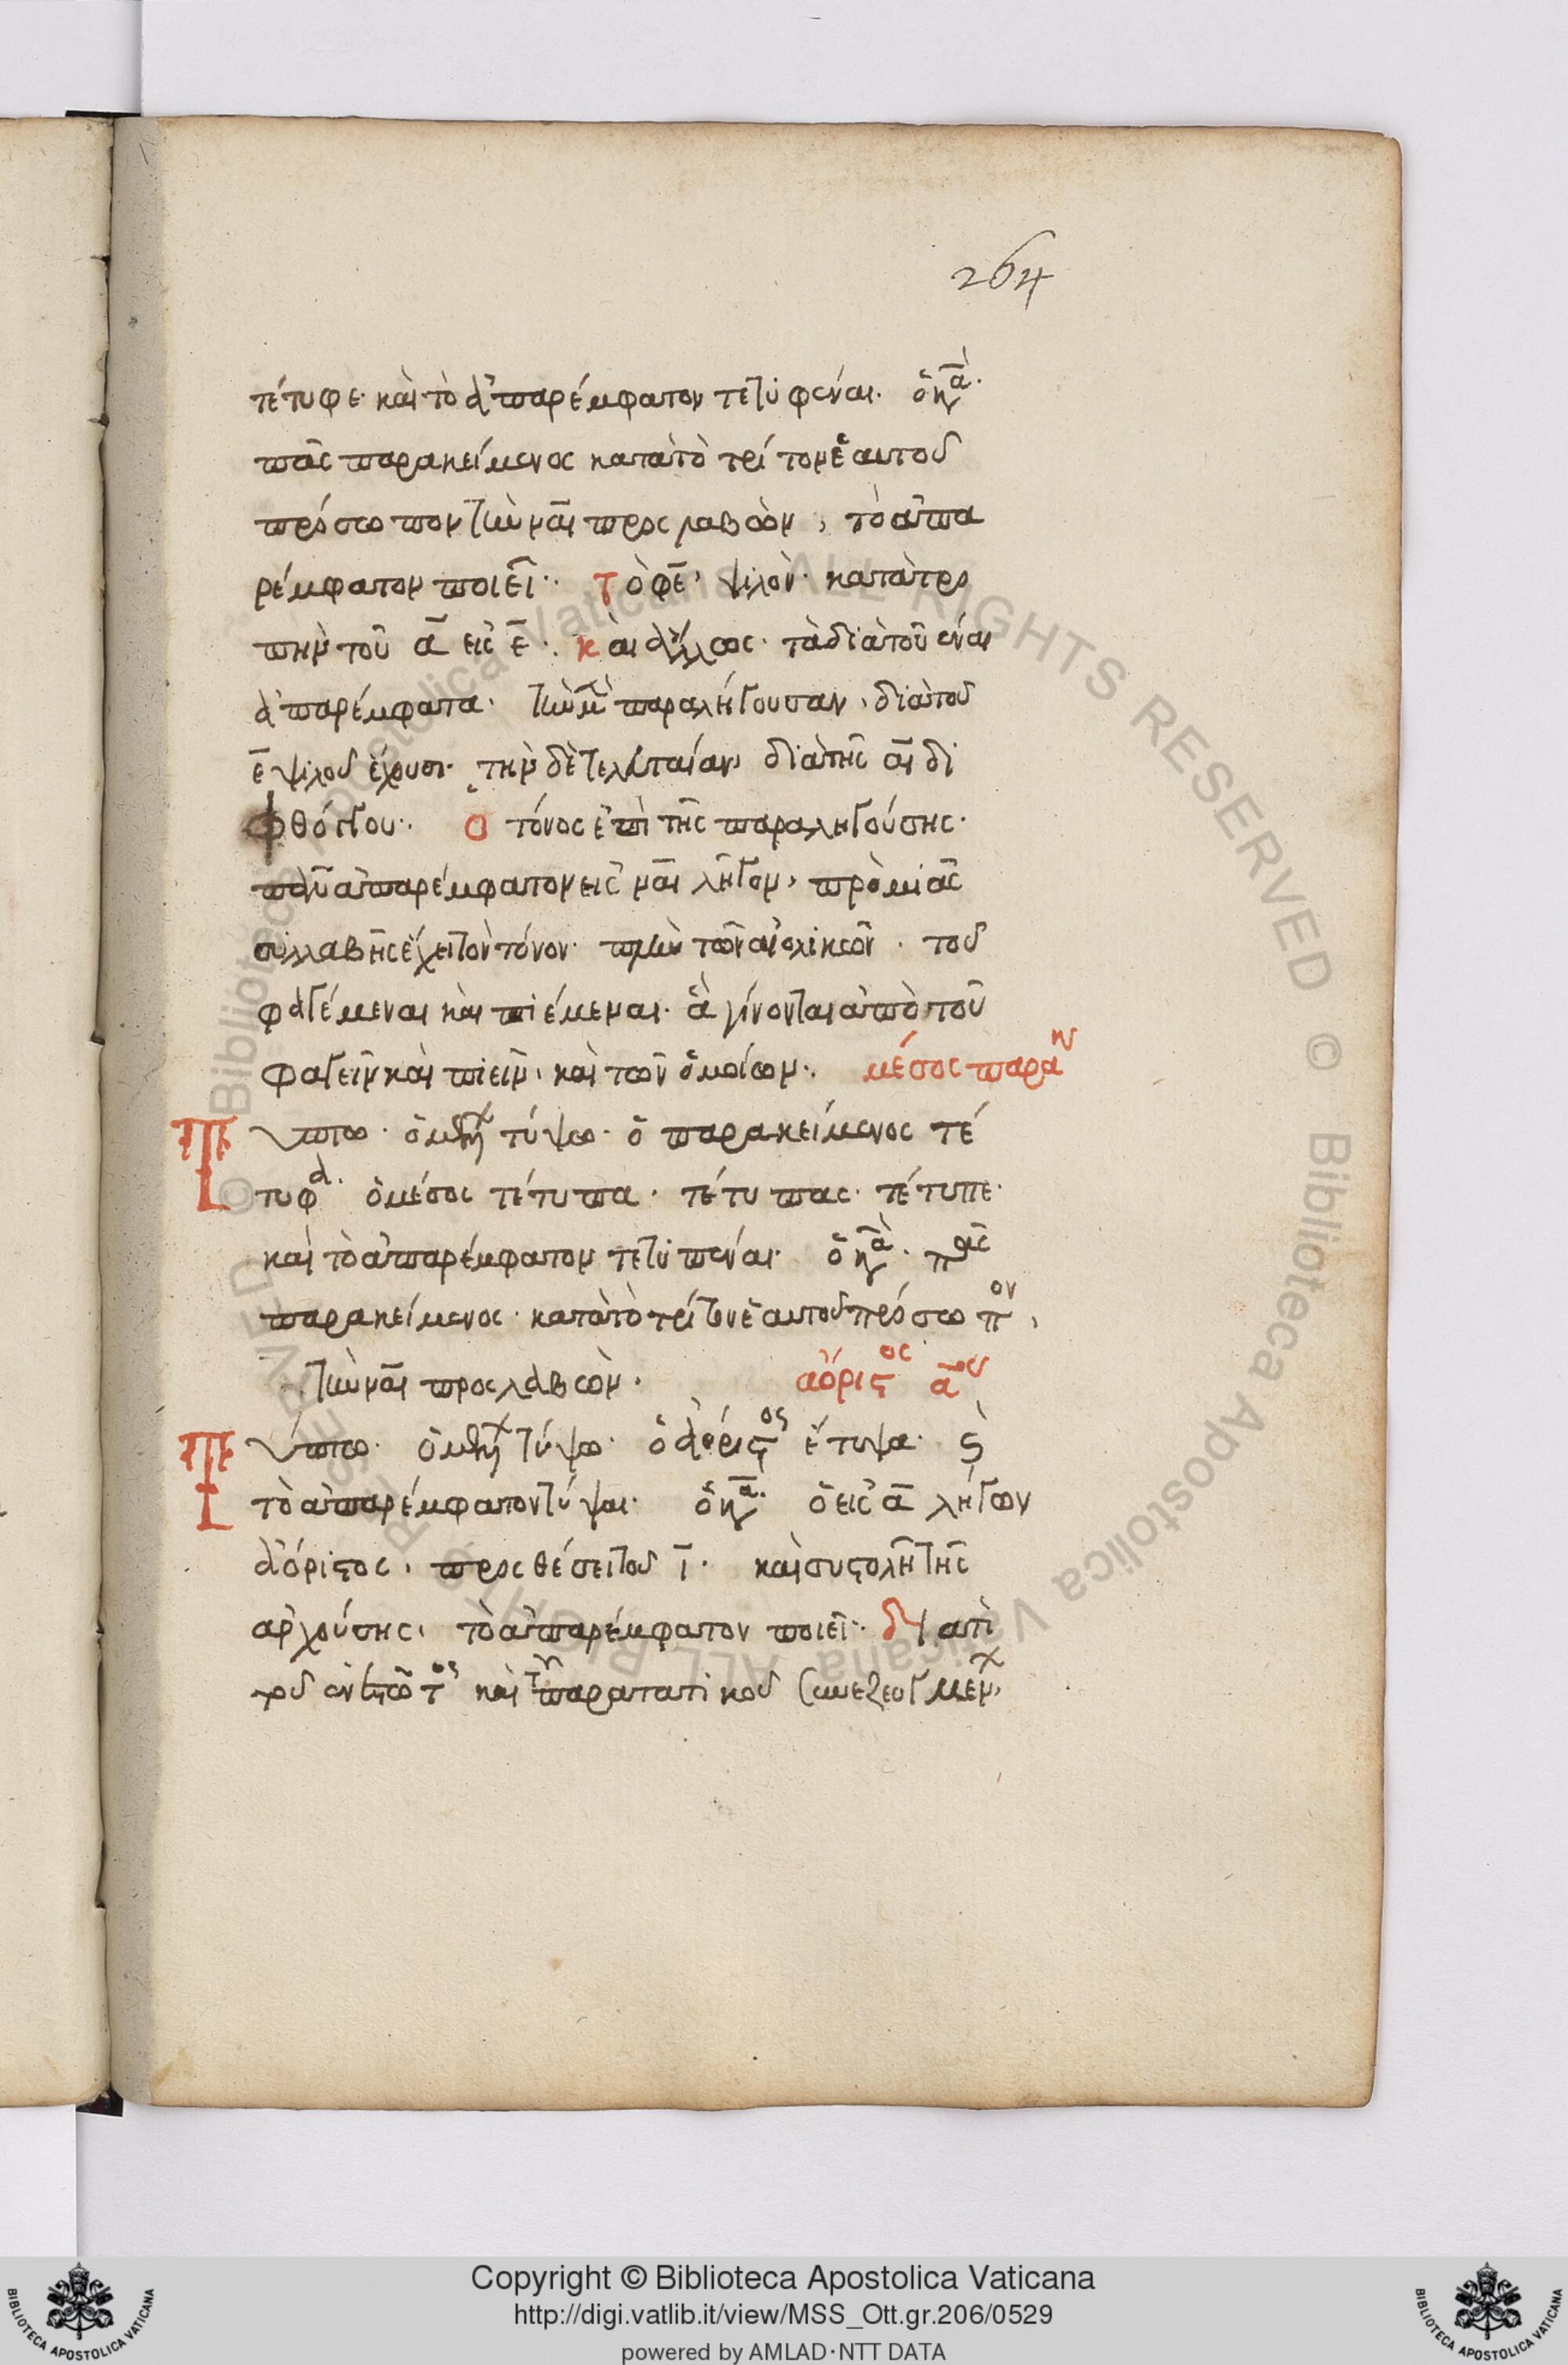 264
τέτυφε· καὶ τὸ ἀπαρέμφατον τετυφέναι. ὁ κα(ν)·
πᾶς παρακείμενος κατὰ τὸ τρίτον ἑαυτοῦ
πρόσωπον τὴν ναι προσλαβὼν, τὸ ἀπα
ρέμφατον ποιεῖ· τὸ φε, ψιλὸν· κατὰ τρο
πὴν τοῦ α εἰς ε· καὶ ἄλλως· τὰ διὰ τοῦ έναι
ἀπαρέμφατα· τὴν μὲ παραλήγουσαν, διὰ τοῦ
ε ψιλοῦ ἔχουσι· τὴν δὲ τελευταίαν, διὰ τῆς αι δι
φθόγγου· ὁ τόνος ἐπὶ τῆς παραληγούσης·
πᾶν ἀπαρέμφατον εἰς ναι λῆγον, πρὸ μιᾶς
συλλαβῆς ἔχει τὸν τόνον· πλὴν τῶν αἰολικῶν· τοῦ
φαγέμεναι καὶ πιέμεναι· ἃ γίνονται ἀπὸ τοῦ
φαγεῖν καὶ πιεῖν, καὶ τῶν ὁμοίων· μέσος παρα
Τύπτω· ὁ μέλλ τύψω· ὁ παρακείμενος τέ
τυφα· ὁ μέσος τέτυπα· τέτυπας· τέτυπε·
καὶ τὸ ἀπαρέμφατον τετυπέναι· ὁ κα· πᾶς
παρακείμενος· κατὰ τὸ τρίτον ἑαυτοῦ πρόσωπον,
τὴν ναι προσλαβὼν· αόριστος αου
Τύπτω· ὁ μέλλ τύψω· ὁ ἀόριστος ἔτυψα· ϛ
τὸ ἀπαρέμφατον τύψαι· ὁ κα· ὁ εἰς α λήγων
ἀόριστος, προσθέσει τοῦ ι· καὶ συστολῆ τῆς
αρχούσης, τὸ ἀπαρέμφατον ποιεῖ·
τοῦ καὶ παρατατικοῦ
Copyright © Biblioteca Apostolica Vaticana
http://digi.vatlib.it/view/MSS_Ott.gr.206/0529
powered by AMLAD·NTT DATA
BIBLIOTECA APOSTOLICA VATICANA
BIBLIOTECA APOSTOLICA VATICANA
© Biblioteca Apostolica Vaticana ALL RIGHTS RESERVED © Biblioteca Apostolica Vaticana ALL RIGHTS RESERVED